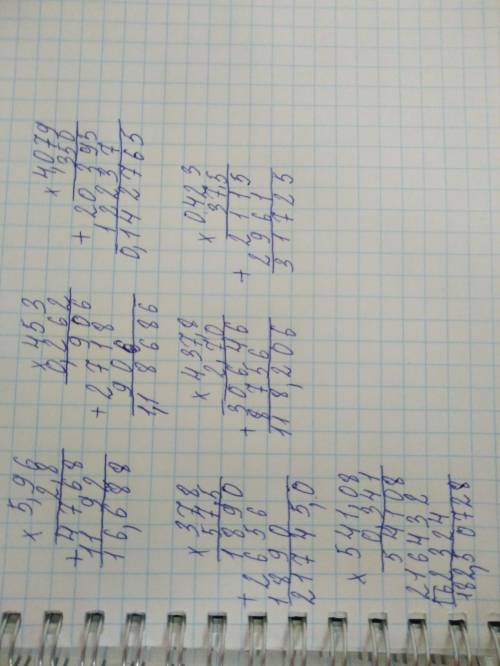 × 5,96
2,8
+ 4768
11 92
16,688
× 453
0,262
906
+ 2718
906
11,8686
× 4079
,350
+ 20395
12237
0,142765
× 378
575
1890
+ 2656
1890
21745,0
× 4378
2,70
+ 30646
8756
118,206
× 0,423
37,5
+ 2115
2961
31725
× 54108
0,341
54108
216432
162324
182,50728